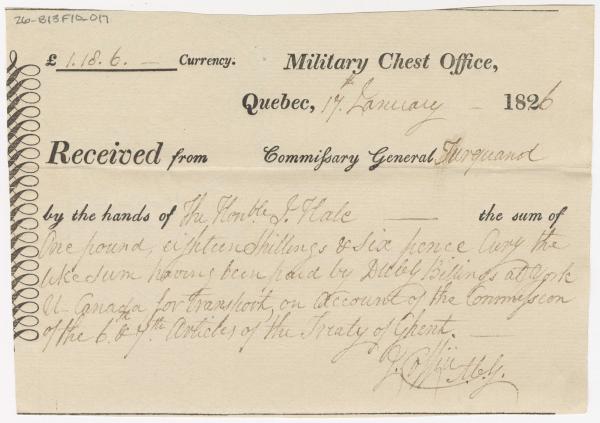 26-B13F10-017
£ 1.18.6. — Currency. Military Chest Office,
Quebec, 17th January — 1826
Received from Commiſsary General Turquand
by the hands of The Honble J. Hale — the sum of
One pound, eighteen Shillings & Six pence Curcy the
like sum having been paid by Billings at York
U. Canada for transport, on account of the Commission
of the 6th & 7th Articles of the Treaty of Ghent. —